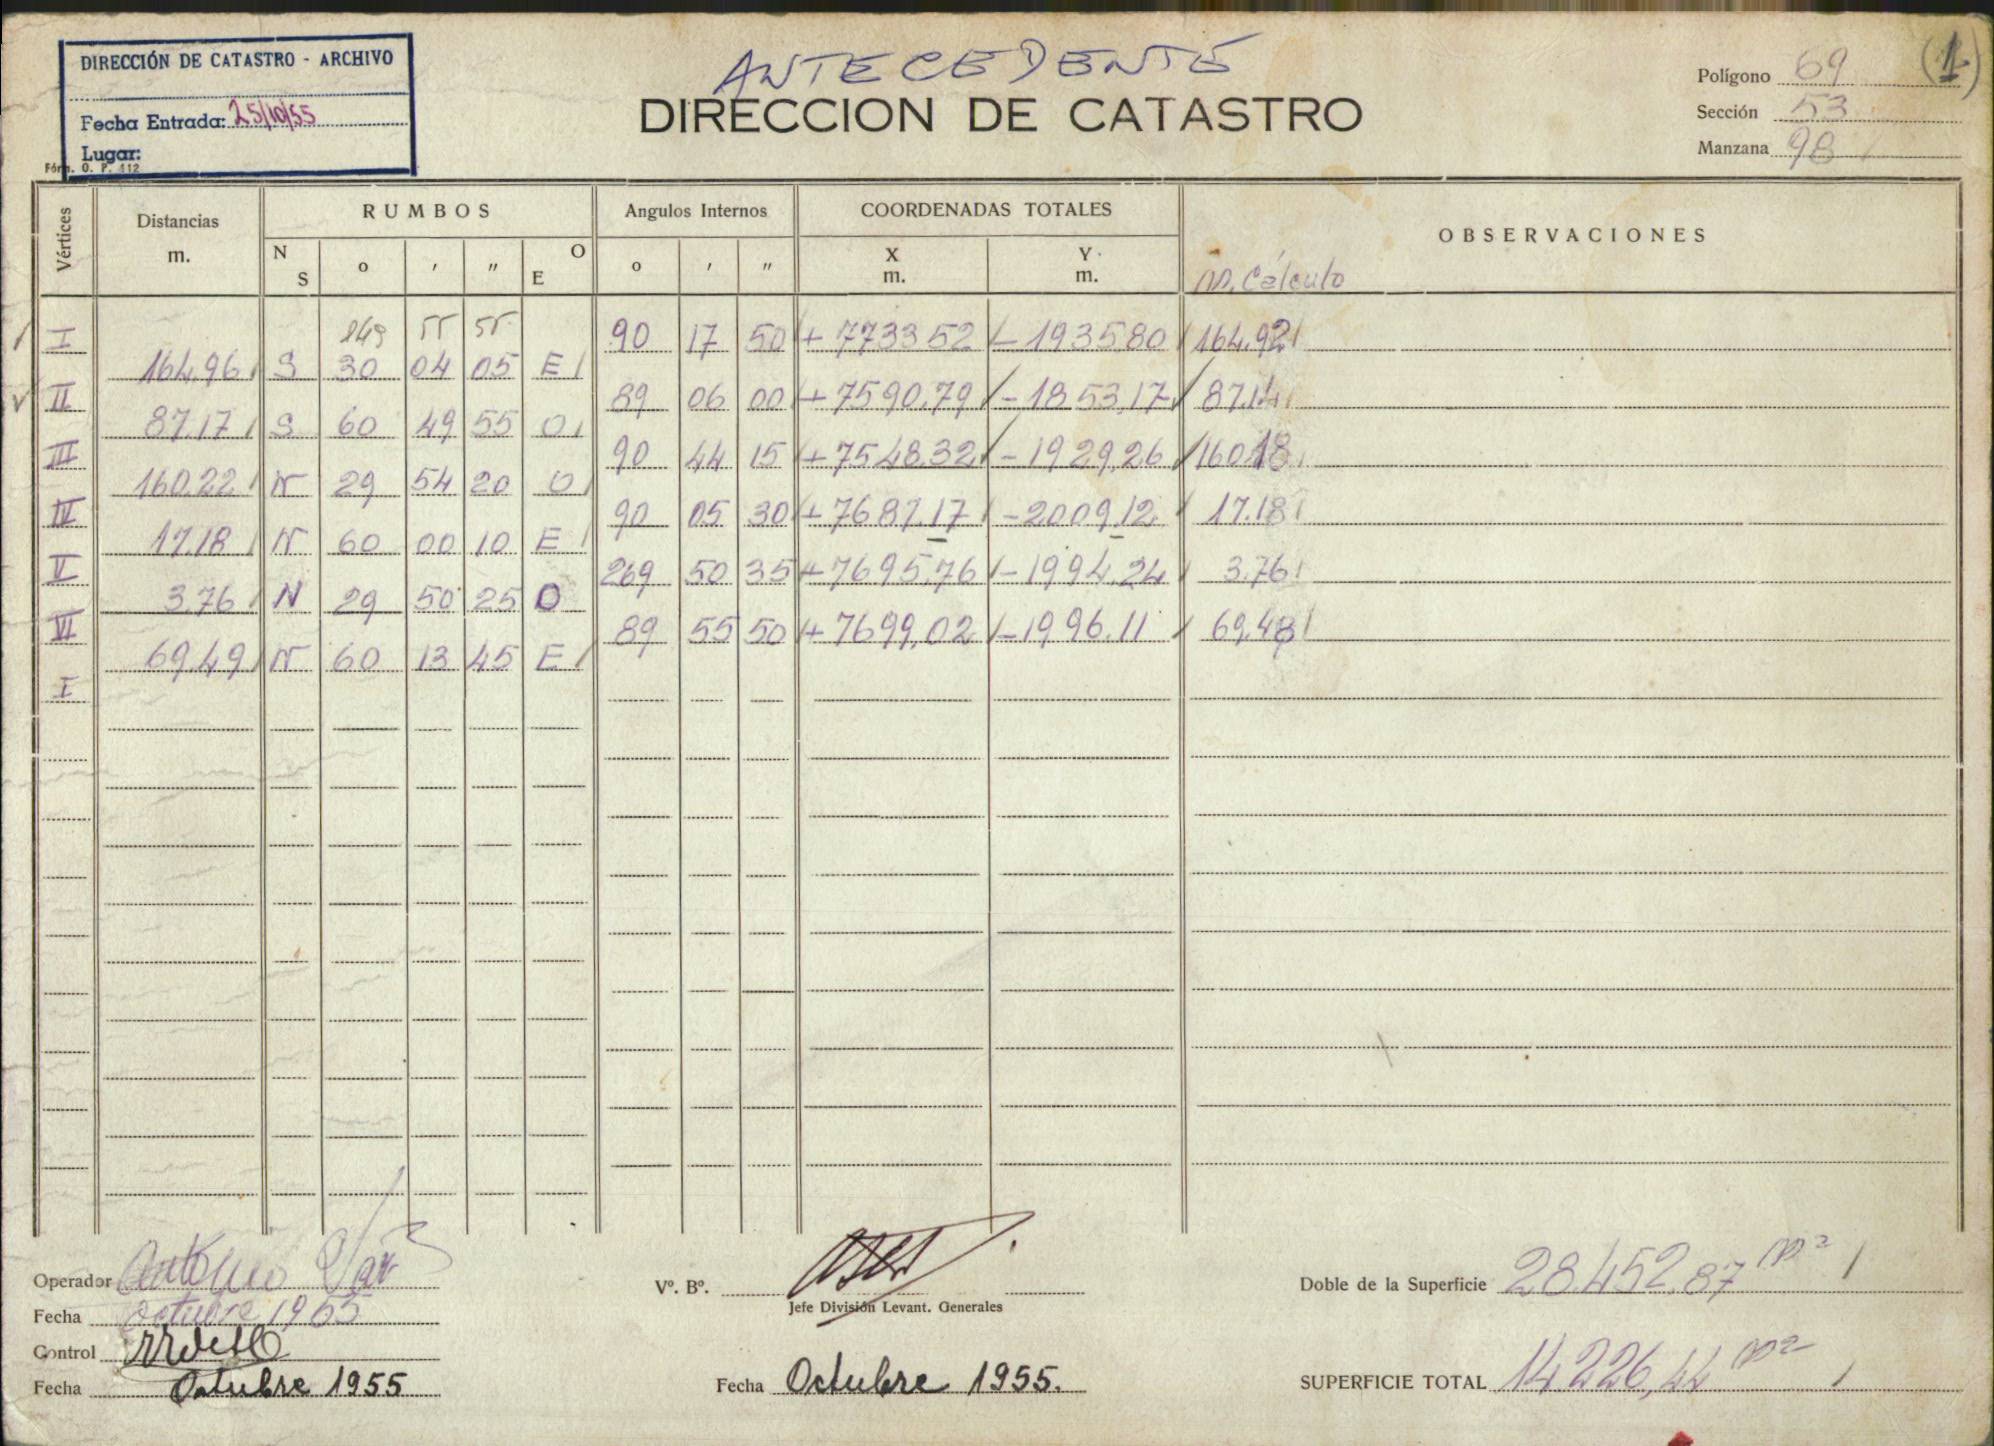 DIRECCIÓN DE CATASTRO - ARCHIVO
Fecha Entrada: 25/10/55
Lugar:
Fórm. O. P. 412
ANTECEDENTE
DIRECCION DE CATASTRO
Polígono 69 (1)
Sección 53
Manzana 98
Vértices Distancias m. RUMBOS Angulos Internos COORDENADAS TOTALES OBSERVACIONES
N S o ′ ″ O E o ′ ″ X m. Y m. m. Cálculo
149 55 55
I 90 17 50 + 7733 52 - 193580 164.92
164.96 S 30 04 05 E
II 89 06 00 + 7590.79 - 1853.17 87.14
87.17 S 60 49 55 O
III 90 44 15 + 7548.32 - 1929.26 160.18
160.22 N 29 54 20 O
IV 90 05 30 + 7687.17 - 2009.12 17.18
17.18 N 60 00 10 E
V 269 50 35 + 7695.76 - 1994.24 3.76
3.76 N 29 50 25 O
VI 89 55 50 + 7699.02 - 1996.11 69.48
69.49 N 60 13 45 E
I
Operador Antonio
Fecha octubre 1955
Control
Fecha Octubre 1955
Vº. Bº.
Jefe División Levant. Generales
Fecha Octubre 1955.
Doble de la Superficie 28.452.87 m²
SUPERFICIE TOTAL 14.226,44 m²